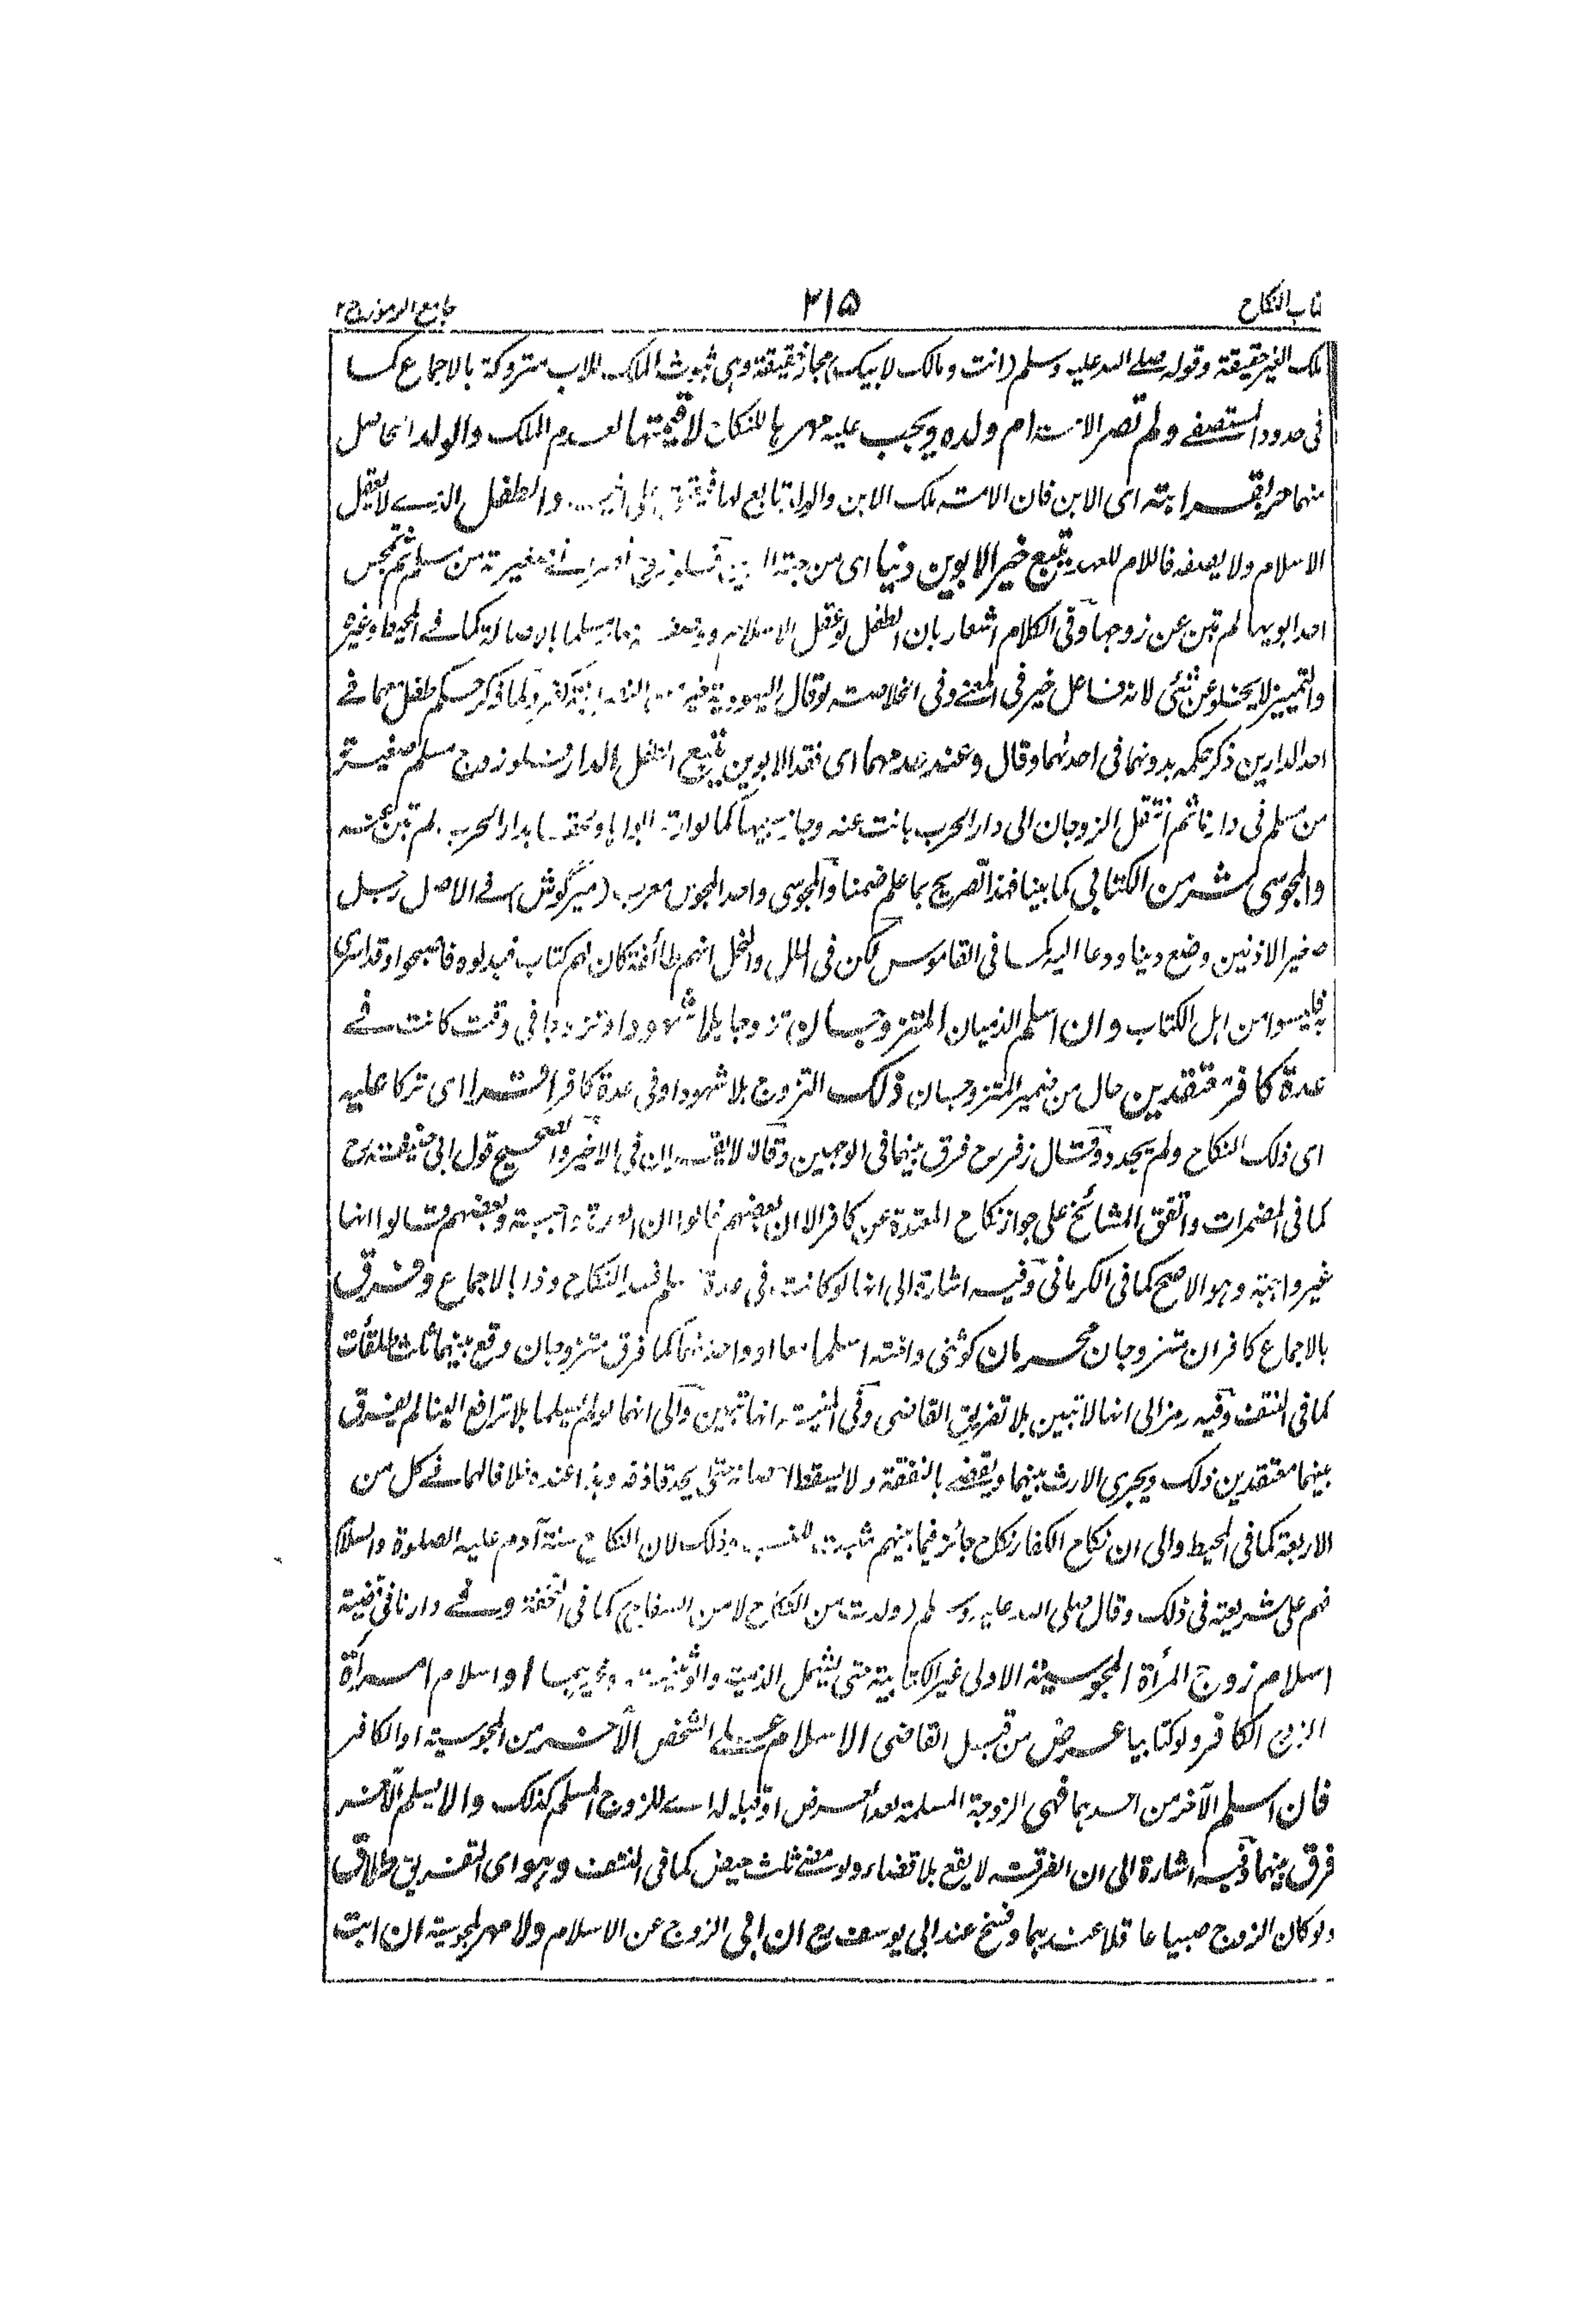 كتاب النكاح
٢١٥
جامع الرموز ج٢
ملك الغير حقيقة وقوله صلے الله عليه وسلم (انت ومالك لابيك) مجاز حقيقة وہی ثبوت الملك للاب متروكة بالاجماع كما
فى حدود المستصفے ولم تصر الامة ام ولده ويجب عليه مهرها للنكاح لا قيمتها لعدم الملك والولد الحاصل
منهما حر بقرابته اى الابن فان الامة ملك الابن والولد تابع لها والطفل الذى لا يعقل
الاسلام ولا يصفه فاللام للعهد يتبع خير الابوين دينا اى من جهة الدين صغيرة من مسلم ثم تمجس
احد ابويها لم تبن عن زوجها وفى الكلام اشعار بان الطفل لو عقل الاسلام مسلما بالاصالة كما فے المحيط وغيره
والتمييز لا يخلو عن شئ لانه فاعل خير فى المعنے وفى الخلاصة لو قال اليهودية خير من النصرانية كفر ولما ذكر حكم طفل هما فے
احد الدارين ذكر حكمه بدونهما فى احدٰهما وقال وعند عدمهما اى فقد الابوين يتبع الطفل الدار فلو زوج مسلم صغيرة
من مسلم فى دارنا ثم انتقل الزوجان الى دار الحرب بانت عنه وجاز سبيها كما لو ارتد ابواها ولحقا بدار الحرب لم تبن عنه
والمجوسى شر من الكتابى كما بينا فهذا تصريح بما علم ضمنا والمجوسى واحد المجوس معرب (ميرگوش) فے الاصل رجل
صغير الاذنين وضع دينا ودعا اليه كما فى القاموس لكن فى الملل والنحل انهم طائفة كان لهم كتاب فبدلوه فاصبحوا وقد اسرى
فليسوا من اهل الكتاب وان اسلم الذميان المتزوجان تزوجا بلا شهود او تزوجا فى وقت كانت فے
عدة كافر معتقدين حال من ضمير المتزوجان ذلك التزوج بلا شهود او فى عدة كافر اقرا اى تركا عليه
اى ذلك النكاح ولم يجدد وقال زفر رح فرق بينهما فى الوجهين وقالا لا يقران فى الاخير والصحيح قول ابى حنيفة رح
كما فى المضمرات واتفق المشائخ على جواز نكاح المعتدة عن كافر الا ان بعضهم قالوا ان العدة واجبة وبعضهم قالوا انها
غير واجبة وهو الاصح كما فى الكرمانى وفيه اشارة الى انها لو كانت فى عدة مسلم فسد النكاح وذا بالاجماع وفرق
بالاجماع كافران متزوجان محرمان كوثنى واخته اسلما معا او واحد منهما كما فرق متزوجان وقع بينهما ثلث طلقات
كما فى النتف وفيه رمز الى انها لا تبين بلا تفريق القاضى وفى المنية انها تبين والى انهما لو لم يسلما بلا ترافع الينا لم يفرق
بينهما معتقدين ذلك ويجرى الارث بينهما ويقضے بالنفقة ولا يسقط احصانه حتى يحد قاذفه وهذا عنده خلافا لهما فے كل من
الاربعة كما فى المحيط والى ان نكاح الكفار نكاح جائز فيما بينهم مثبت للنسب وذلك لان النكاح سنة آدم عليه الصلوة والسلام
فهم على شريعته فى ذلك وقال صلى الله عليه وسلم (ولدت من النكاح لا من السفاح) كما فى التحفة وفے دارنا فى قضية
اسلام زوج المرأة المجوسية الاولى غير الكتابية حتى يشمل الذمية والوثنية وغيرهما او اسلام امرأة
الزوج الكافر ولو كتابيا عرض من قبل القاضى الاسلام علے الشخص الآخر من المجوسية او الكافر
فان اسلم الآخر من احدهما فهى الزوجة المسلمة بعد العرض او قبله له اے للزوج المسلم كذلك والا يسلم الآخر
فرق بينهما وفيه اشارة الى ان الفرقة لا يقع بلا قضاء ولو مضے ثلث حيض كما فى النتف وهو اى التفريق طلاق
ولو كان الزوج صبيا عاقلا عندهما وفسخ عند ابى يوسف رح ان ابى الزوج عن الاسلام ولا مهر لمجوسية ان ابت